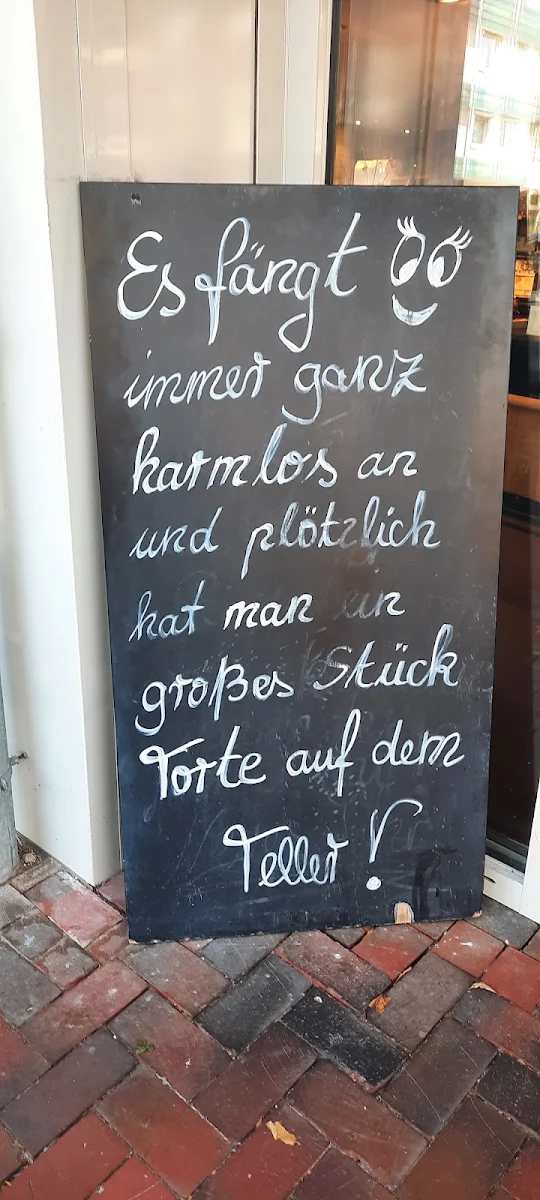 Es fängt
immer ganz
harmlos an
und plötzlich
hat man ein
großes Stück
Torte auf dem
Teller!